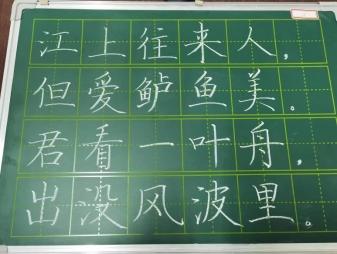 江上往来人，
但爱鲈鱼美。
君看一叶舟，
出没风波里。